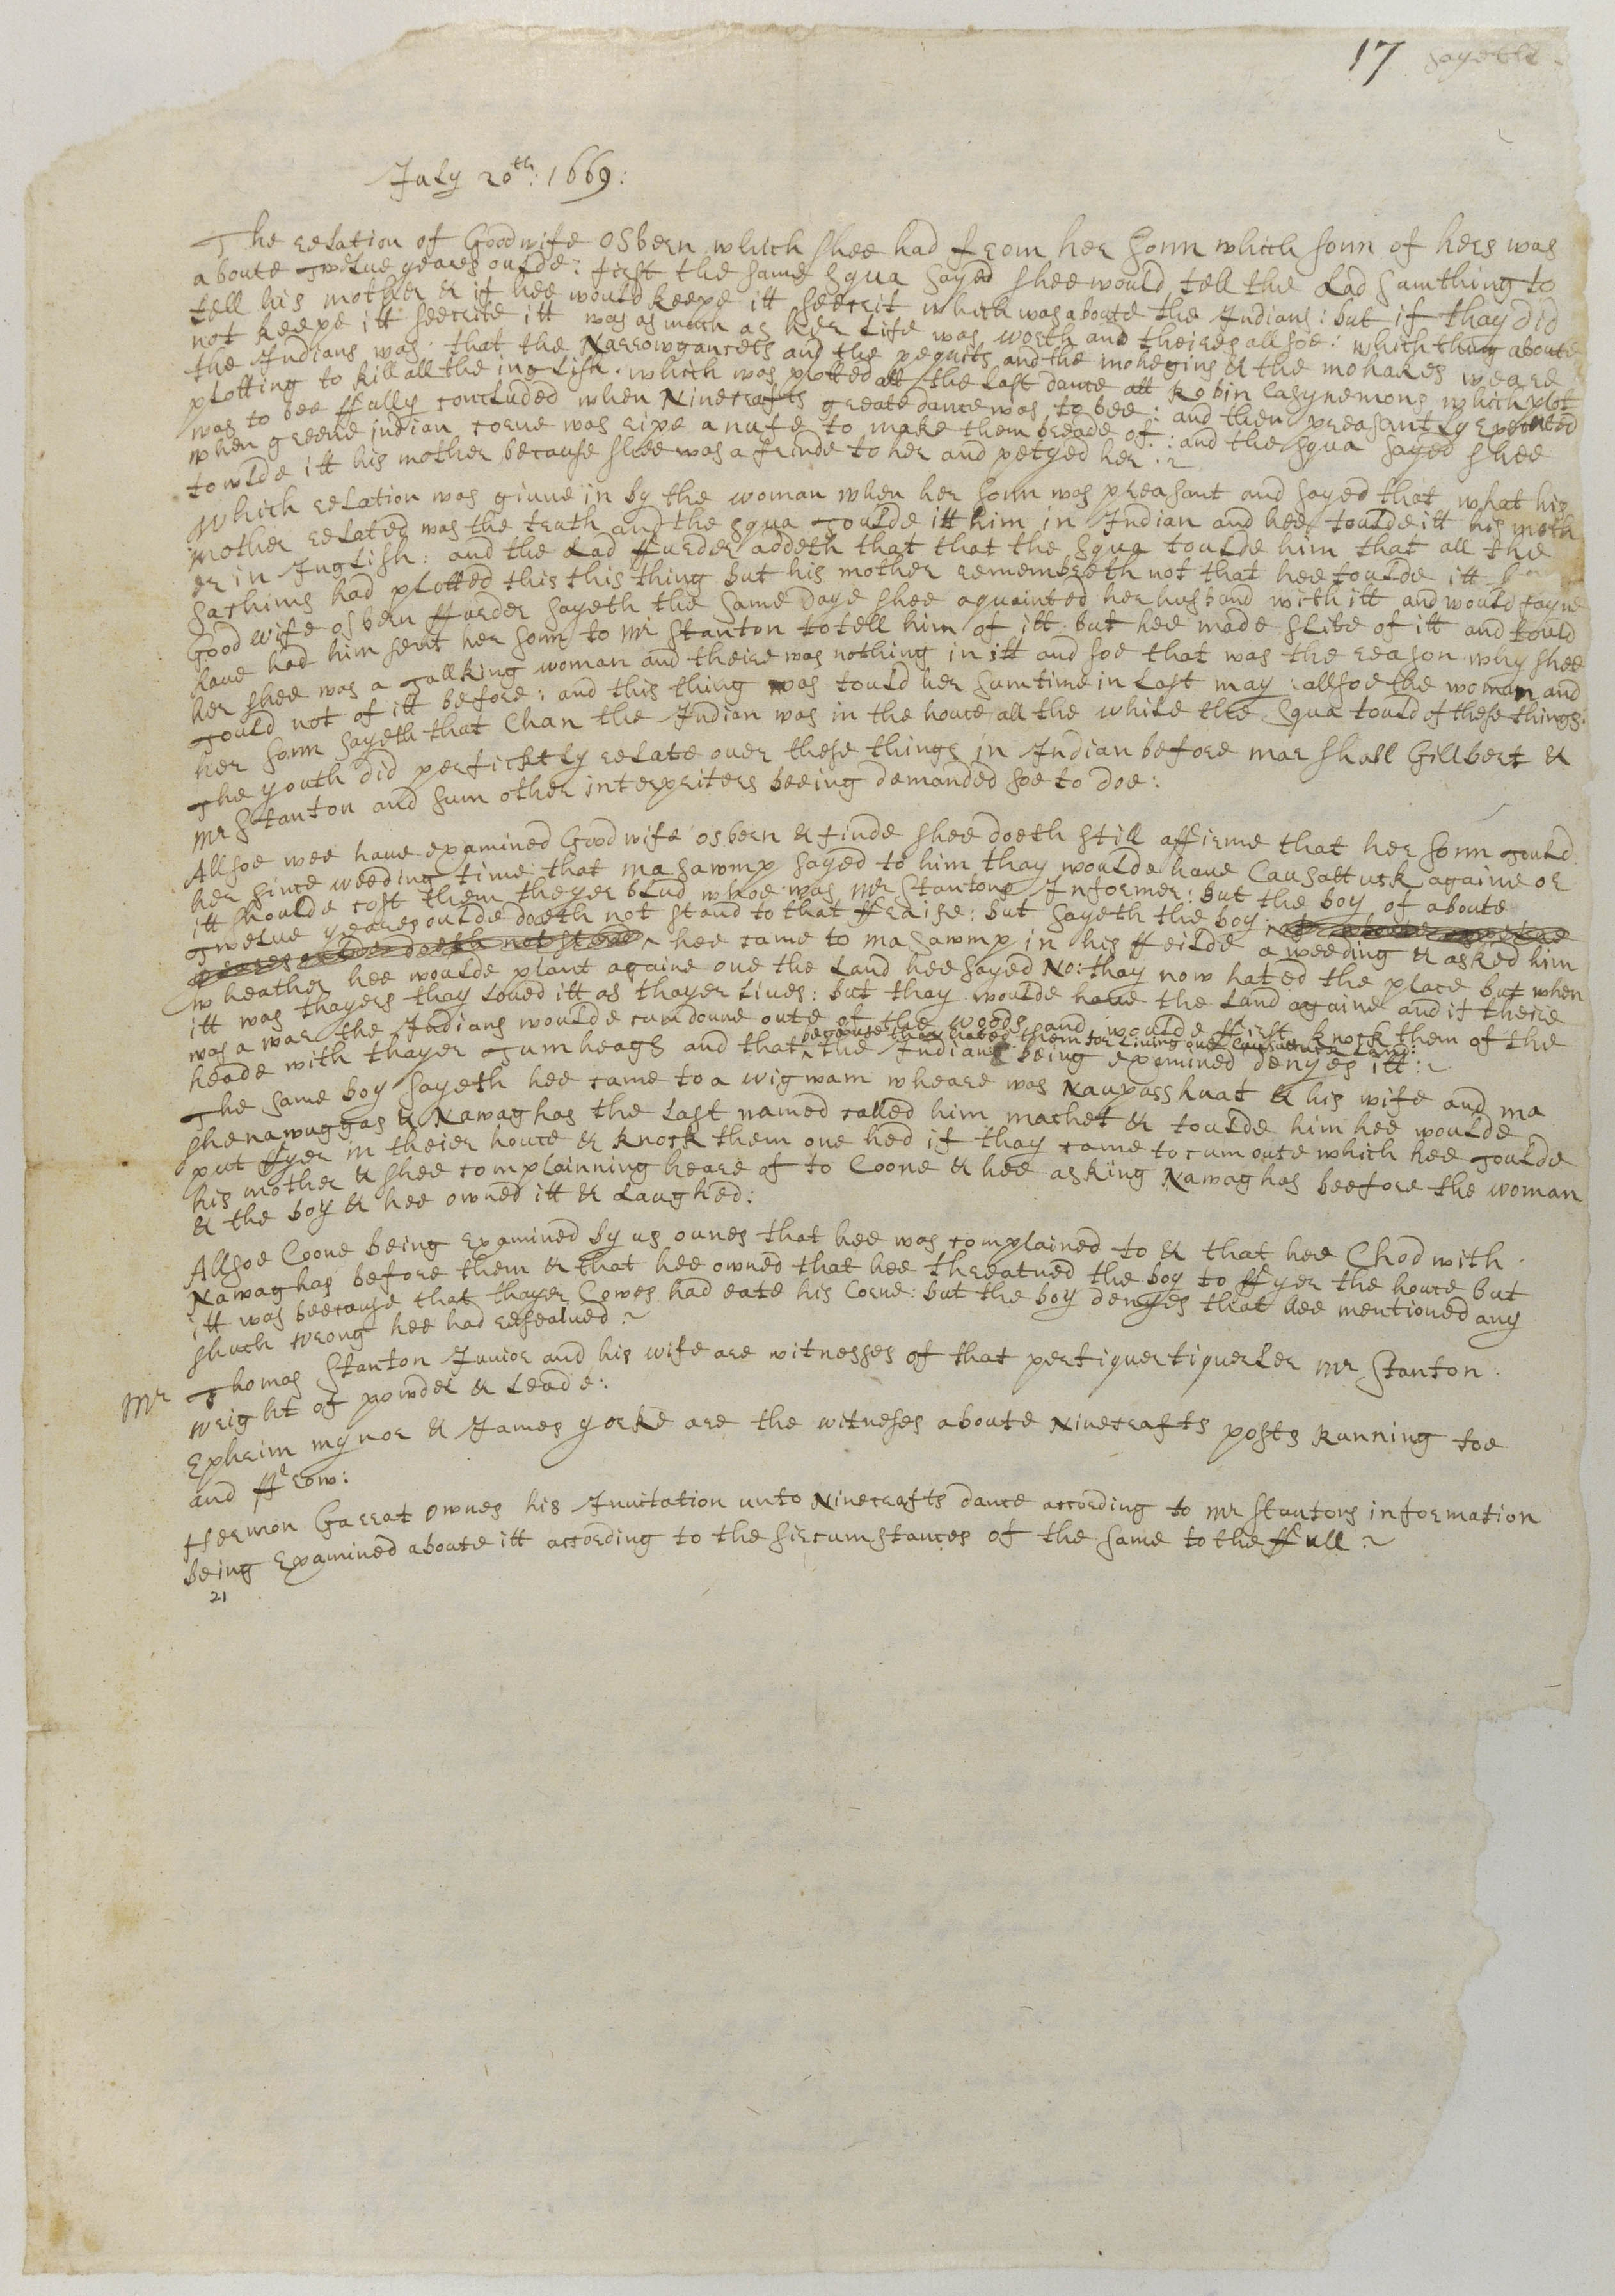 17 sayeth
July 20th: 1669:
The relation of Goodwife Osbern which shee had from her sonn which sonn of hers was
aboute twelue yeares oulde: first the same squa sayed shee would tell the Lad sumthing to
tell his mother & if hee would keepe itt seecrit which was aboute the Indians: but if thay did
not keepe itt seecrite itt was as much as her Life was worth and theires allsoe: which thing aboute
the Indians was: that the Narrowgansets and the pequits and the mohegins & the mohakes weare
plotting to kill all the inglish. which was plotted att the Last dance att Robin Casynemons which plot
was to bee ffully concluded when Ninecrafts greate dance was to bee: and then preasantly exicuted
when greene indian corne was ripe anufe to make them breade of: and the squa sayed shee
towlde itt his mother because shee was a frinde to her and petyed her:~
Which relation was giuue in by the woman when her sonn was preasant and sayed that what his
mother related was the truth and the squa toulde itt him in Indian and hee toulde itt his moth
er in Inglish: and the Lad ffurder addeth that that the squa toulde him that all the
sachims had plotted this this thing but his mother remembreth not that hee toulde itt
Good wife osbern ffurder sayeth the same daye shee aquainted her husband with itt and would fayne
haue had him sent her sonn to Mr Stanton to tell him of itt. but hee made slite of itt and tould
her shee was a tallking woman and theire was nothing in itt and soe that was the reason why shee
tould not of itt before: and this thing was tould her sumtime in Last may: allsoe the woman and
her sonn sayeth that Chan the Indian was in the house all the while the squa tould of these things:
The youth did perficktly relate ouer these things in Indian before marshall Gillbert &
Mr Stanton and sum other interpriters beeing demanded soe to doe:
Allsoe wee haue examined Goodwife osbern & finde shee doeth still affirme that her sonn tould
her since weeding time that masawmp sayed to him thay woulde haue Causattuck againe or
itt shoulde cost them theyer blud whoe was Mr Stantons Informer: but the boy of aboute
twelue yeares oulde doeth not stand to that ffraise: but sayeth the boy of aboute twelue
yeares oulde doeth not stand ^ hee came to masawmp in his ffeilde a weeding & asked him
wheather hee woulde plant againe one the Land hee sayed No: thay now hated the place but when
itt was thayers thay Loued itt as thayer Liues: but thay woulde haue the Land againe and if theire
was a war the Indians woulde cum doune oute of the woods and woulde ffirst knock them of the
because thay hated them for Liuing one Causattuck Land:
heade with thayer tumheags and that ^ the Indian being examined denyes itt:~
The same boy sayeth hee came to a wigwam wheare was Naupasshuat & his wife and ma
shenawuggas & Nawaghas the Last named called him machet & toulde him hee woulde
put ffyer in theier house & knock them one hed if thay came to cum oute which hee toulde
his mother & shee complainning heare of to Coone & hee asking Nawaghas beefore the woman
& the boy & hee owned itt & Laughed:
Allsoe Coone being Examined by us ownes that hee was complained to & that hee Chod with
Nawaghas before them & that hee owned that hee threatned the boy to ffyer the house but
itt was beecause that thayer Cowes had eate his Corne: but the boy denyes that hee mentioned any
shuch wrong hee had resealued:~
Mr Thomas Stanton Junior and his wife are witnesses of that pertiquertiquerler Mr Stanton
wright of powder & Leade:
Ephrim mynor & James yorke are the witneses aboute Ninecrafts posts Running toe
and ffrow:
Hermon Garrat ownes his Inuitation unto Ninecrafts dance according to Mr Stantons information
being Examined aboute itt according to the sircumstances of the same to the ffull:~
21